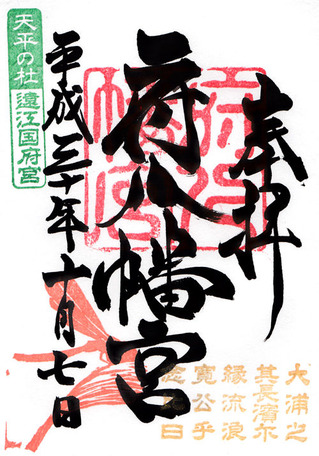 奉拝
府八幡宮
平成三十年十月七日
天平の杜
遠江国府宮
大浦之
其長濱尓
縁流浪
寛公乎
念比日